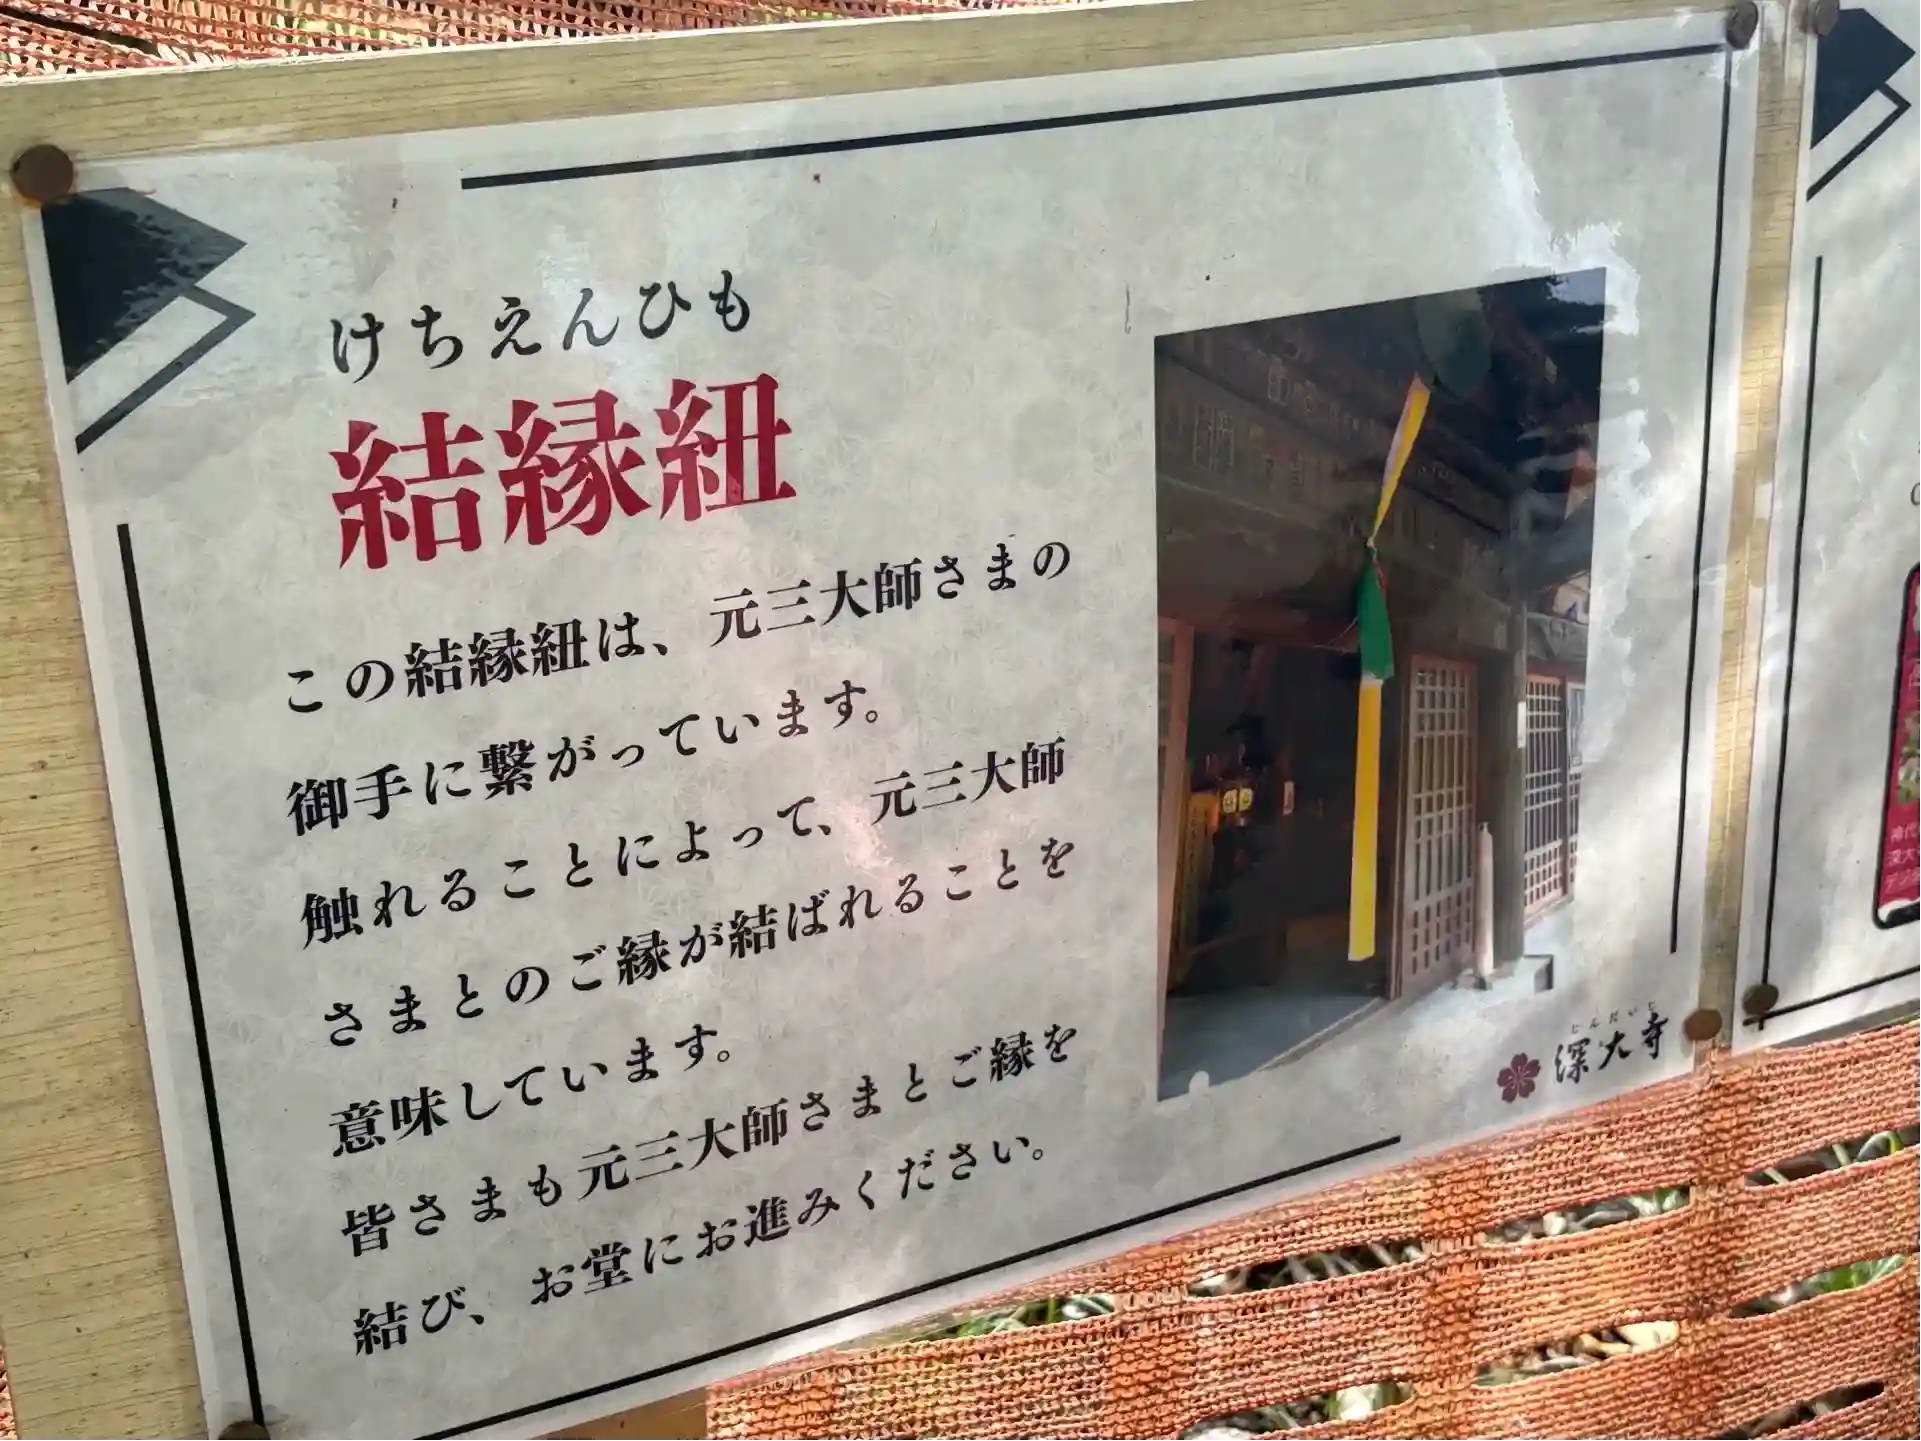 けちえんひも
結縁紐
この結縁紐は、元三大師さまの
御手に繋がっています。
触れることによって、元三大師
さまとのご縁が結ばれることを
意味しています。
皆さまも元三大師さまとご縁を
結び、お堂にお進みください。
じんだいじ
深大寺
神代
深大
デジタ